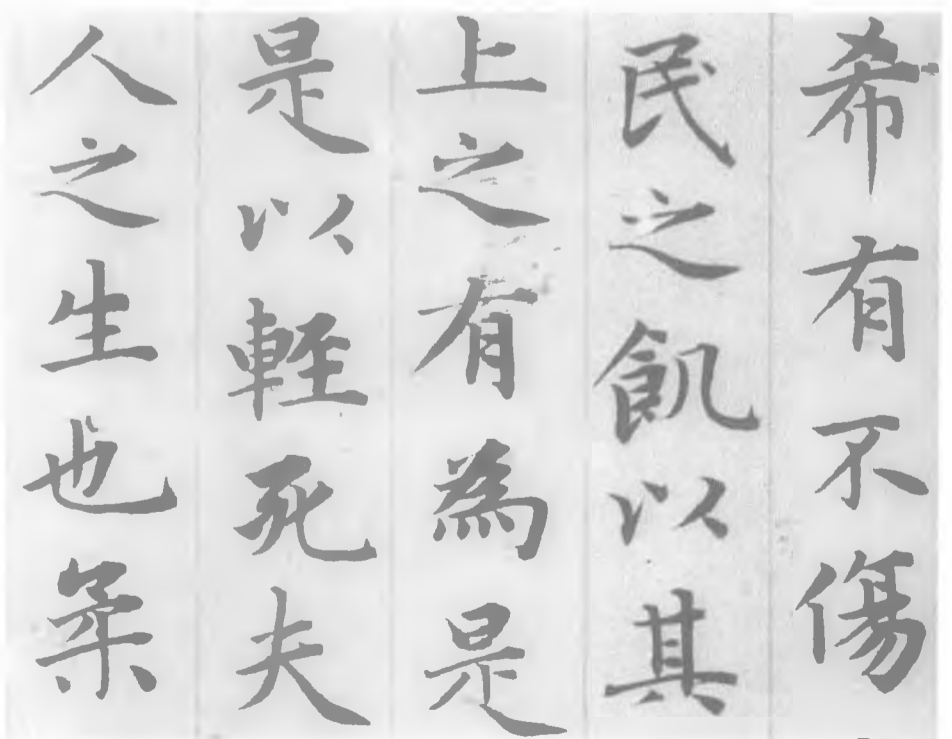 希有不傷
民之飢以其
上之有為是
是以輕死夫
人之生也柔